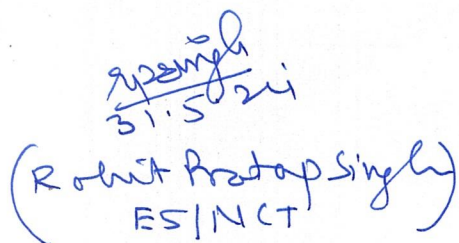 rpsingh
31.5.24
(Rohit Pratap Singh)
ES/NCT